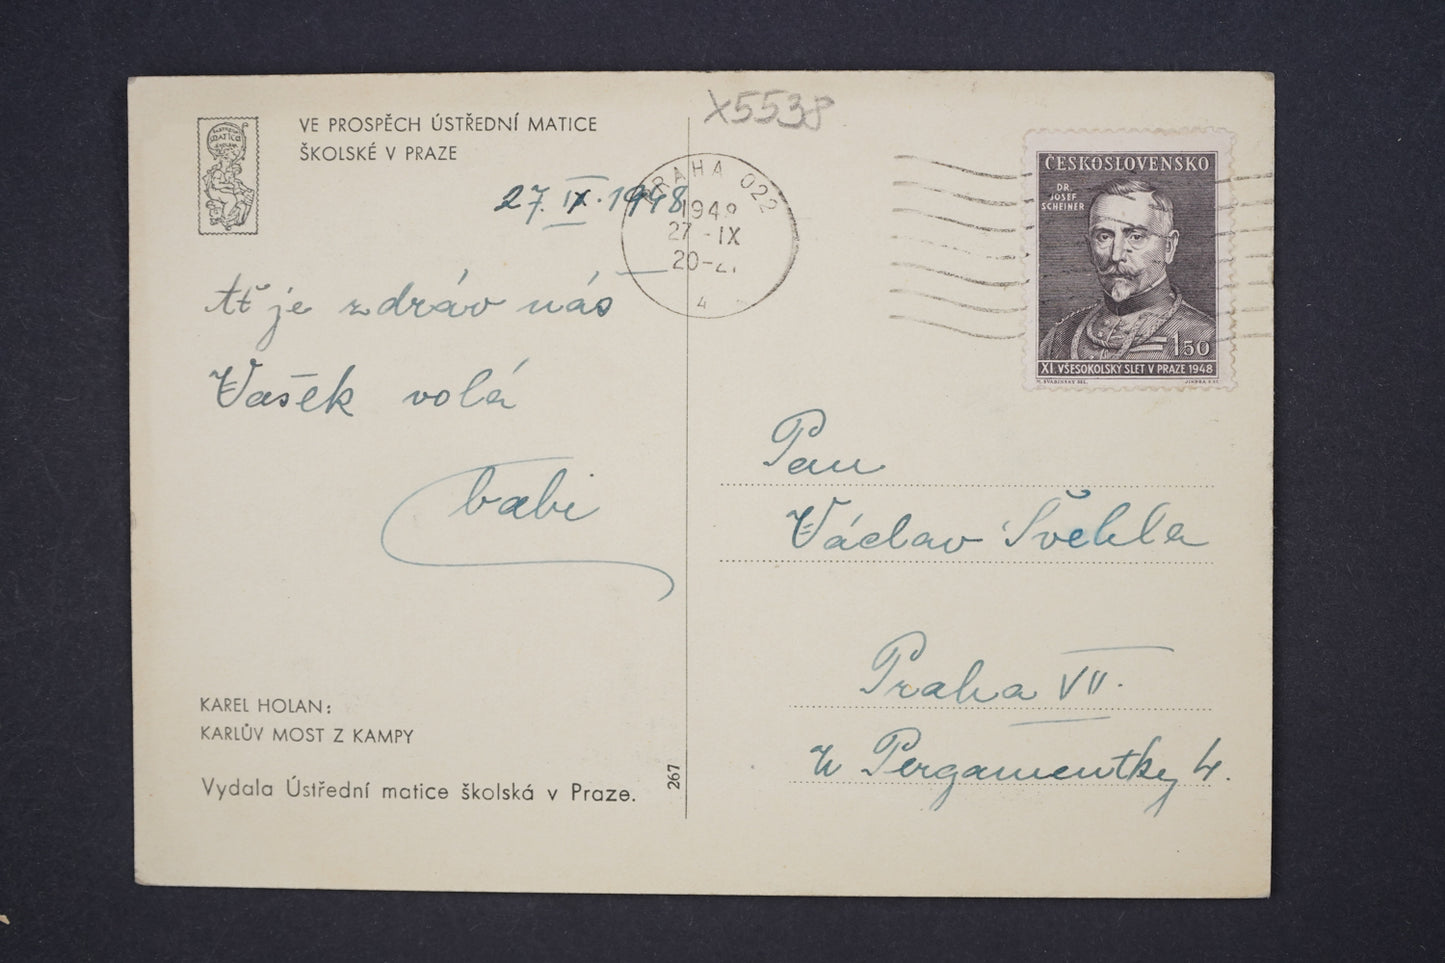 X5538
VE PROSPĚCH ÚSTŘEDNÍ MATICE
ŠKOLSKÉ V PRAZE
27. IX. 1948
Ať je zdráv náš
Vašek volá
babi
KAREL HOLAN:
KARLŮV MOST Z KAMPY
Vydala Ústřední matice školská v Praze.
267
PRAHA 022
1948
27 - IX
20-2
4
ČESKOSLOVENSKO
DR.
JOSEF
SCHEINER
150
XI. VŠESOKOLSKÝ SLET V PRAZE 1948
M. ŠVABINSKÝ DEL.
Pan
Václav Švehla
Praha VII.
U Pergamentky 4.